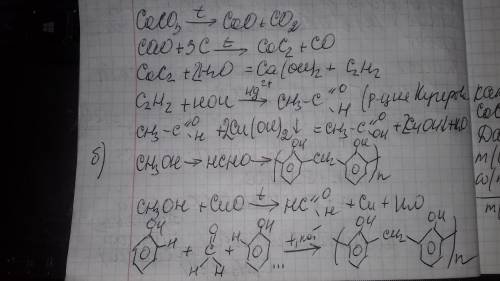 CaCO3 →t CaO + CO2
CaO + 3C →t CaC2 + CO
CaC2 + 2H2O = Ca(OH)2 + C2H2
C2H2 + HOH →Hg2+ CH3-C=O H (р-ция Кучерова
CH3-C=O H + 2Cu(OH)2↓ = CH3-C=O OH + 2CuOH + H2O
б) CH3OH → HCHO → ( OH CH2 OH )n
CH3OH + CuO →t HC=O H + Cu + H2O
OH H + O C H H + H OH ... →t, кат ( OH CH2 OH )n